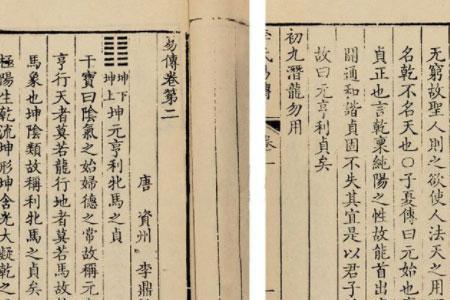 无窮故聖人則之欲使人法天之用
名乾不名天也〇子夏傳曰元始也
貞正也言乾稟純陽之性故能首出
開通和諧貞固不失其宜是以君子
故曰元亨利貞矣
初九潛龍勿用
易傳卷第二
唐 資州 李鼎
䷁坤下坤上坤元亨利牝馬之貞
干寶曰陰氣之始婦德之常故稱元
亨行天者莫若龍行地者莫若馬故
馬象也坤陰類故稱利牝馬之貞矣
極陽生乾流坤形坤含光大凝乾之